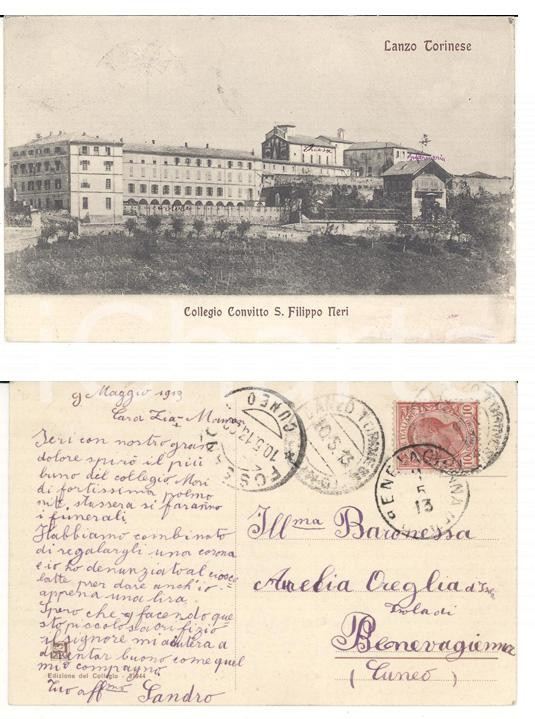 Lanzo Torinese
Chiesa
Infermeria
Collegio Convitto S. Filippo Neri
9 Maggio 1913
Cara Zia
Jeri con nostro gran
dolore spirò il più
buno del collegio Morì
di fortissima polmo
nit. stassera si faranno
i funerali.
Habbiamo combinato
di regalargli una corona
e io ho denunziato al
latte per dare anch'io
appena una lira.
Spero che facendo que
sto piccolo sacrifizio
il signore mi aiuterà a
diventar buono come quel
mio compagno
Tuo aff.mo Sandro
Edizione del Collegio
CUNEO
10.5.13
LANZO TORINESE
10.5.13
10
LANZO TORINESE
BENEVAGIENNA
5
13
Ill.ma Baronessa
Aurelia Oreglia d'Isola
Isola di
Benevagienna
(Cuneo)